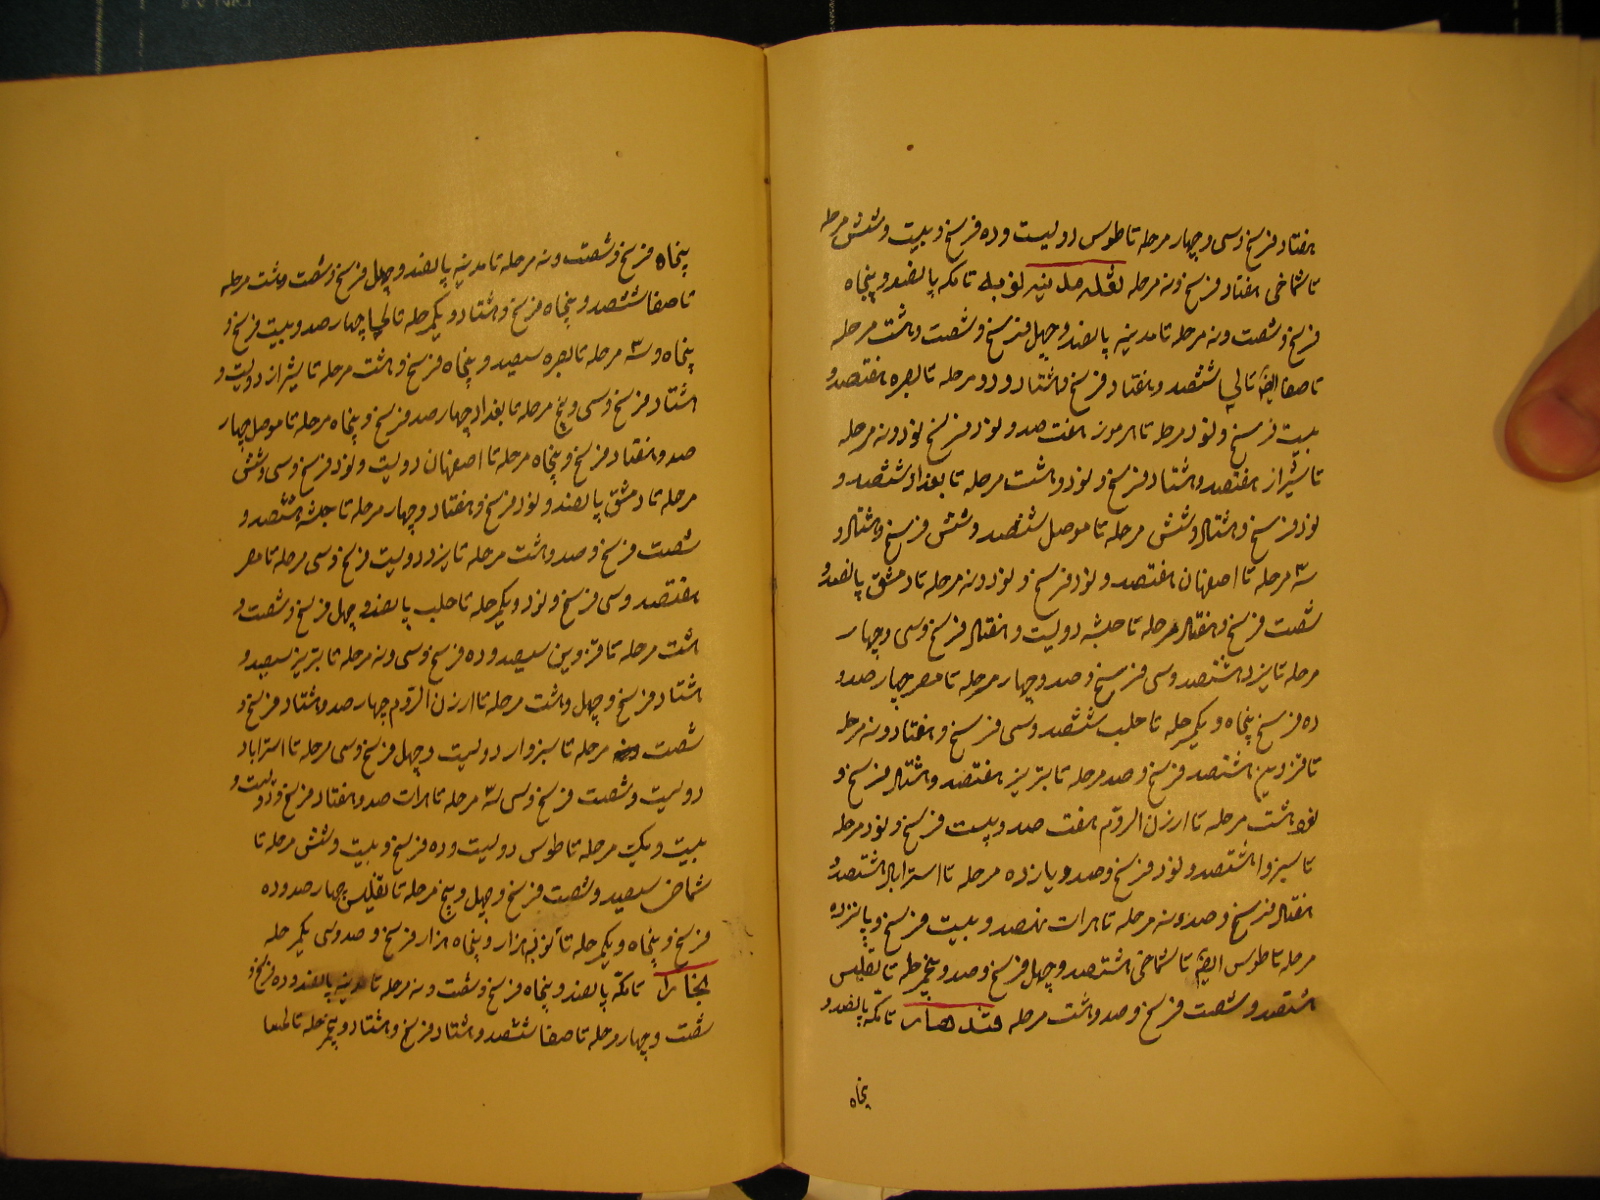 هفتاد فرسخ و سی و چهار مرحله تا طوس دولیست و ده فرسخ و بیست و شش مرحله
تا شماخی هفتاد فرسخ و نه مرحله تا مکه پانصد و پنجاه
فرسخ و شصت و نه مرحله تا مدینه پانصد و چهل فرسخ و شصت و هشت مرحله
تا صفا ایضا تا ششصد و هفتاد فرسخ و هشتاد و دو مرحله تا بصره هفتصد و
بیست فرسخ و نود مرحله تا هرموز هفت صد و نود فرسخ نود و نه مرحله
تا شیراز هفتصد و هشتاد فرسخ و نود و هشت مرحله تا بغداد ششصد و
نود فرسخ و هشتاد و شش مرحله تا موصل ششصد و شش فرسخ و هشتاد و
سه مرحله تا اصفهان هفتصد و نود فرسخ و نود و نه مرحله تا دمشق پانصد و
شصت فرسخ و هفتاد مرحله تا حبشه دولیت و هفتاد فرسخ و سی و چهار
مرحله تا یزد هشتصد و سی فرسخ و صد و چهار مرحله تا مصر چهار صد و
ده فرسخ پنجاه و یکمرحله تا حلب ششصد و سی فرسخ و هفتاد و نه مرحله
تا قزوین هشتصد فرسخ و صد مرحله تا تبریز هفتصد و هشتاد فرسخ و
نود هشت مرحله تا ارزن الروم هفت صد و بیست فرسخ و نود مرحله
تا سبزوار هشتصد و نود فرسخ و صد و یازده مرحله تا استراباد هشتصد و
هفتاد فرسخ و صد و نه مرحله تا هرات نهصد و بیست فرسخ و پانزده
مرحله تا طوس ایضا تا شماخی هشتصد و چهل فرسخ و صد و پنجمرحله تا تفلیس
هشتصد و شصت فرسخ و صد و هشت مرحله قندهار تا مکه پانصد و
پنجاه
پنجاه فرسخ و شصت و نه مرحله تا مدینه پانصد و چهل فرسخ و شصت و هشت مرحله
تا صفا ششصد و پنجاه فرسخ و هشتاد و یکمرحله تا چهار صد و بیست فرسخ و
پنجاه و سه مرحله تا بصره سیصد و پنجاه فرسخ و هشت مرحله تا شیراز دولیت و
هشتاد فرسخ و سی و پنج مرحله تا بغداد چهار صد فرسخ و پنجاه مرحله تا موصل چهار
صد و هفتاد فرسخ و پنجاه مرحله تا اصفهان دولیت و نود فرسخ و سی و شش
مرحله تا دمشق پانصد و نود فرسخ و هفتاد و چهار مرحله تا حبشه هشتصد و
شصت فرسخ و صد و هشت مرحله تا یزد دولیت فرسخ و سی مرحله تا مصر
هفتصد و سی فرسخ و نود و یکمرحله تا حلب پانصد و چهل فرسخ و شصت و
هشت مرحله تا قزوین سیصد و ده فرسخ و سی و نه مرحله تا تبریز سیصد و
هشتاد فرسخ و چهل و هشت مرحله تا ارزن الروم چهار صد و هشتاد فرسخ و
شصت مرحله تا سبزوار دولیت و چهل فرسخ و سی مرحله تا استراباد
دولیت و شصت فرسخ و سی سه مرحله تا هرات صد و هفتاد فرسخ و
بیست و یک مرحله تا طوس دولیت و ده فرسخ و بیت و شش مرحله تا
شماخی سیصد و شصت فرسخ و چهل و پنج مرحله تا تفلیس چهار صد و ده
فرسخ و پنجاه و یکمرحله تا نوبه هزار و پنجاه هزار فرسخ و صد و سی یکمرحله
بخارا تا مکه پانصد و پنجاه فرسخ و شصت و نه مرحله تا مدینه پانصد و ده فرسخ و
شصت و چهار مرحله تا صفا ششصد و هشتاد فرسخ و هشتاد و پنجمرحله تا